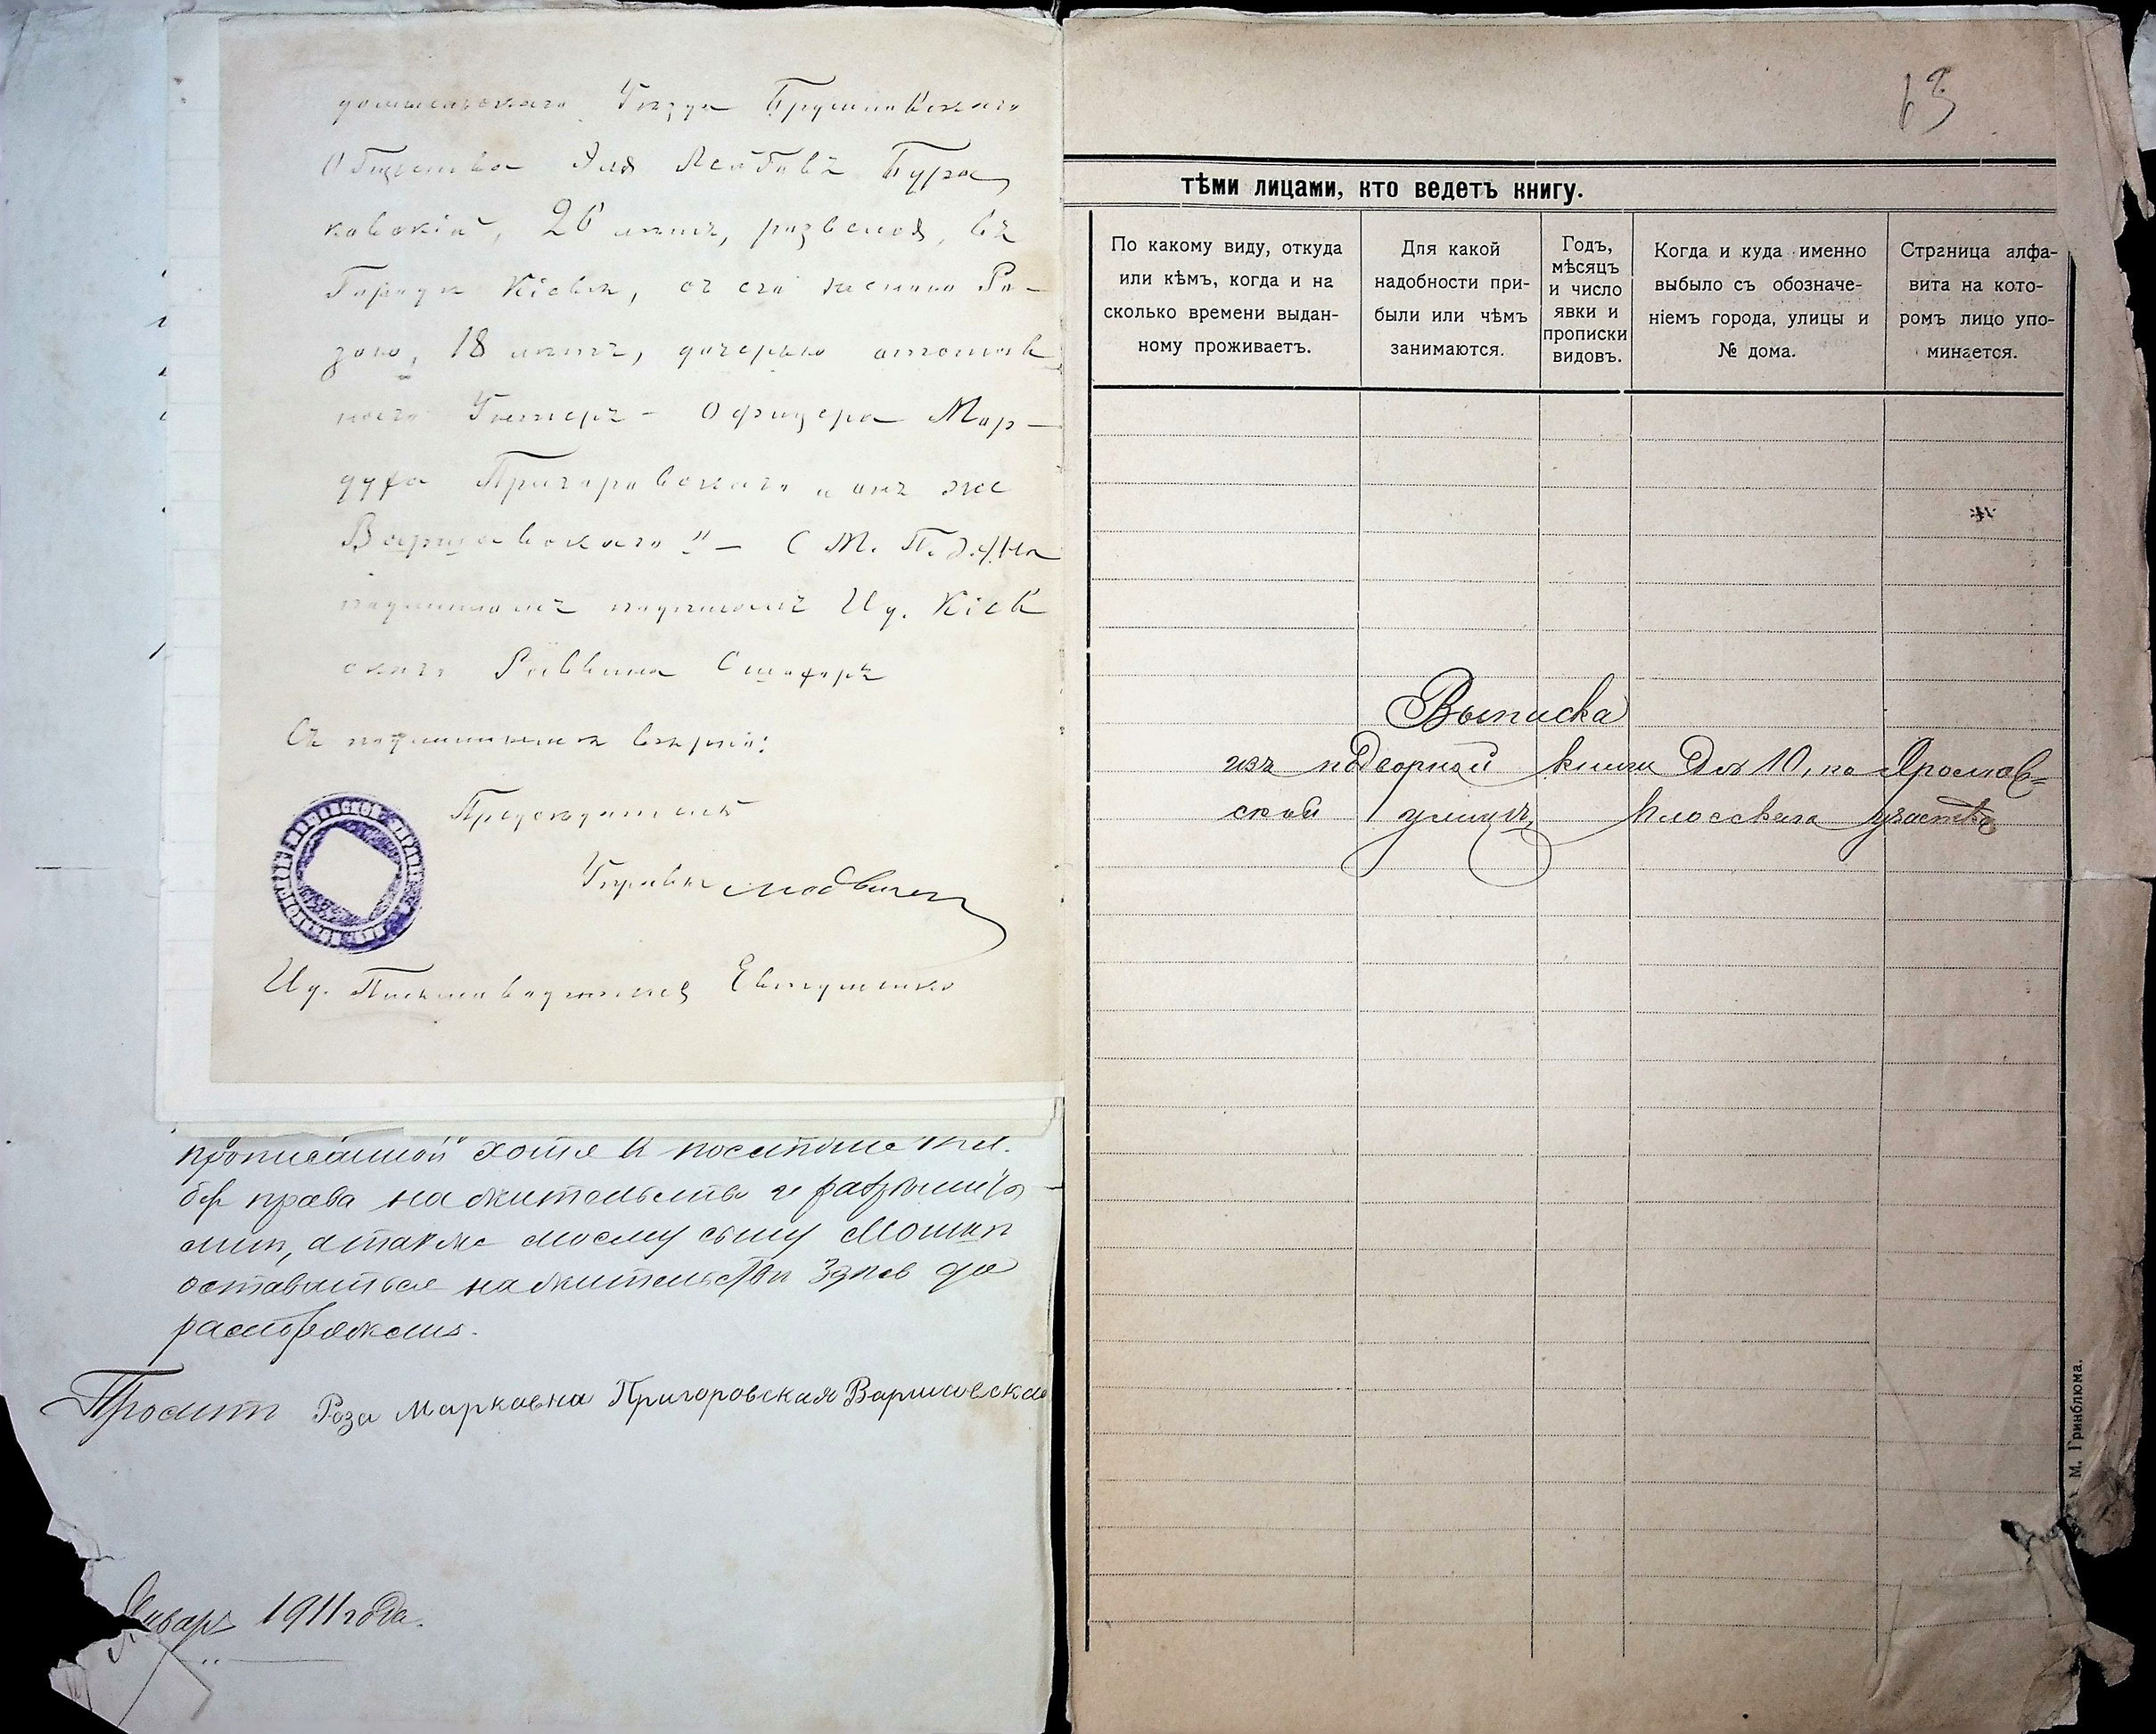 домысльскаго Уѣзда Брусиловскаго
Общества Эля Лейбовъ Бура
ковскій, 26 лѣтъ, развелся, въ
Городѣ Кіевѣ, съ его женою Ро-
зою, 18 лѣтъ, дочерью отстав
ного Унтеръ - Офицера Мор-
духа Пригоровскаго "онъ же
Варшавскаго" - С М. П. За
подлиннымъ подписалъ И д. Кіев
скаго Раввина
Съ подлиннымъ вѣрно:
Предсѣдатель
Управы
И д. Письмоводителя Евтушенко
прописанной хотя и
права на жительство и разрѣшить
мнѣ, а также моему сыну Мошкѣ
оставаться на жительствѣ здѣсь до
распоряженія.
Проситъ Роза Марковна Пригоровская Варшавская
Январь 1911 года.
63
тѣми лицами, кто ведетъ книгу.
По какому виду, откуда или кѣмъ, когда и на сколько времени выданному проживаетъ.
Для какой надобности прибыли или чѣмъ занимаются.
Годъ, мѣсяцъ и число явки и прописки видовъ.
Когда и куда именно выбыло съ обозначеніемъ города, улицы и № дома.
Страница алфавита на которомъ лицо упоминается.
Выписка
изъ подворной книги Д № 10, по Ярослав=
ской улицѣ, Плосскаго участка
М. Гринблюма.